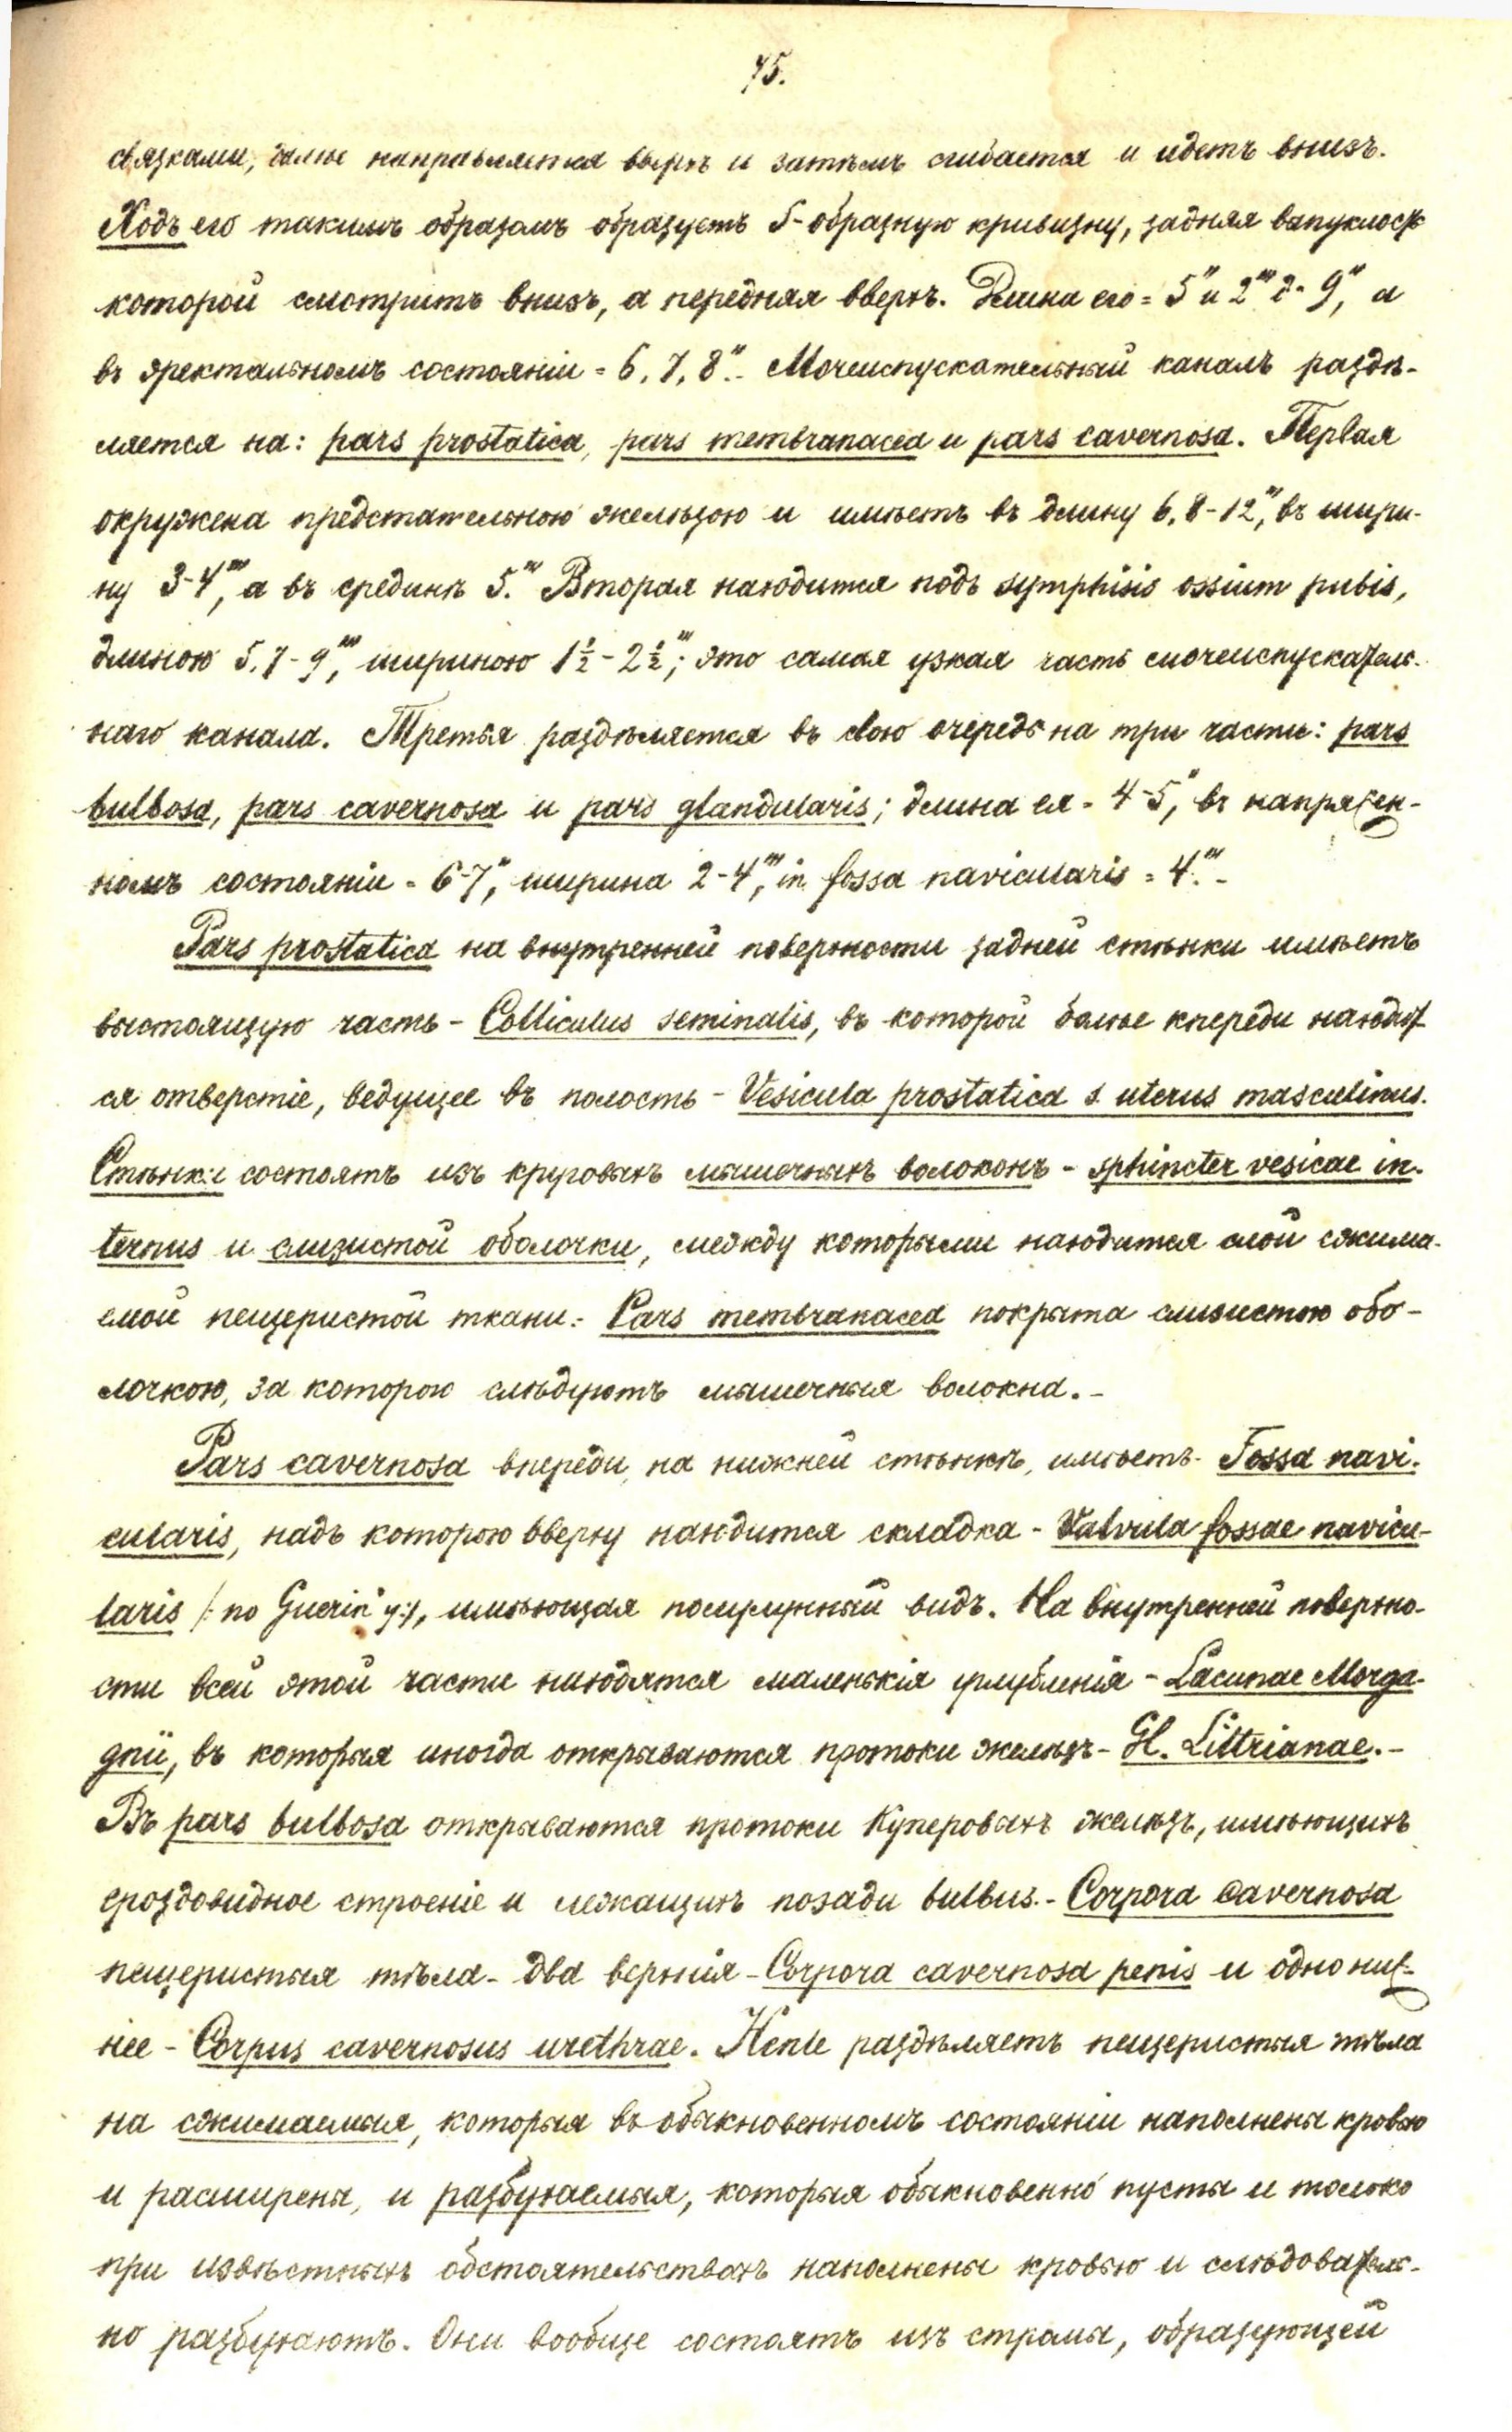 75.
связками, далѣе направляется вверхъ и затѣмъ сгибается и идетъ внизъ.
Ходъ его такимъ образомъ образуетъ S-образную кривизну, задняя выпуклость
которой смотритъ внизъ, а передняя вверхъ. Длина его = 5" и 2''' - 9", а
въ эректальномъ состояніи = 6, 7, 8". - Мочеиспускательный каналъ раздѣ-
ляется на: pars prostatica, pars membranacea и pars cavernosa. Первая
окружена предстательною желѣзою и имѣетъ въ длину 6, 8-12''', въ шири-
ну 3-4''', а въ срединѣ 5.''' Вторая находится подъ symphisis ossium pubis,
длиною 5, 7-9''', шириною 1½-2½'''; это самая узкая часть мочеиспускатель-
наго канала. Третья раздѣляется въ свою очередь на три части: pars
bulbosa, pars cavernosa и pars glandularis; длина ея = 4-5", въ напряжен-
номъ состояніи = 6-7", ширина 2-4''', in fossa navicularis = 4'''. -
Pars prostatica на внутренней поверхности задней стѣнки имѣетъ
выстоящую часть - Colliculus seminalis, въ которой болѣе кпереди находит-
ся отверстіе, ведущее въ полость - Vesicula prostatica s. uterus masculinus.
Стѣнки состоятъ изъ круговыхъ мышечныхъ волоконъ - sphincter vesicae in-
ternus и слизистой оболочки, между которыми находится слой сжима-
емой пещеристой ткани. - Pars membranacea покрыта слизистою обо-
лочкою, за которою слѣдуютъ мышечныя волокна. -
Pars cavernosa впереди, на нижней стѣнкѣ, имѣетъ - Fossa navi-
cularis, надъ которою вверху находится складка - Valvula fossae navicu-
laris /: по Guerin'у :/, имѣющая полулунный видъ. На внутренней поверхно-
сти всей этой части находятся маленькія углубленія - Lacunae Morga-
gnii, въ которыя иногда открываются протоки желѣзъ - Gl. Littrianae. -
Въ pars bulbosa открываются протоки Куперовыхъ желѣзъ, имѣющихъ
гроздовидное строеніе и лежащихъ позади bulbus. - Corpora cavernosa
пещеристыя тѣла - два верхнія - Corpora cavernosa penis и одно ниж-
нее - Corpus cavernosus urethrae. Henle раздѣляетъ пещеристыя тѣла
на сжимаемыя, которыя въ обыкновенномъ состояніи наполнены кровью
и расширены, и разбухаемыя, которыя обыкновенно пусты и только
при извѣстныхъ обстоятельствахъ наполнены кровью и слѣдователь-
но разбухаютъ. Они вообще состоятъ изъ стромы, образующей